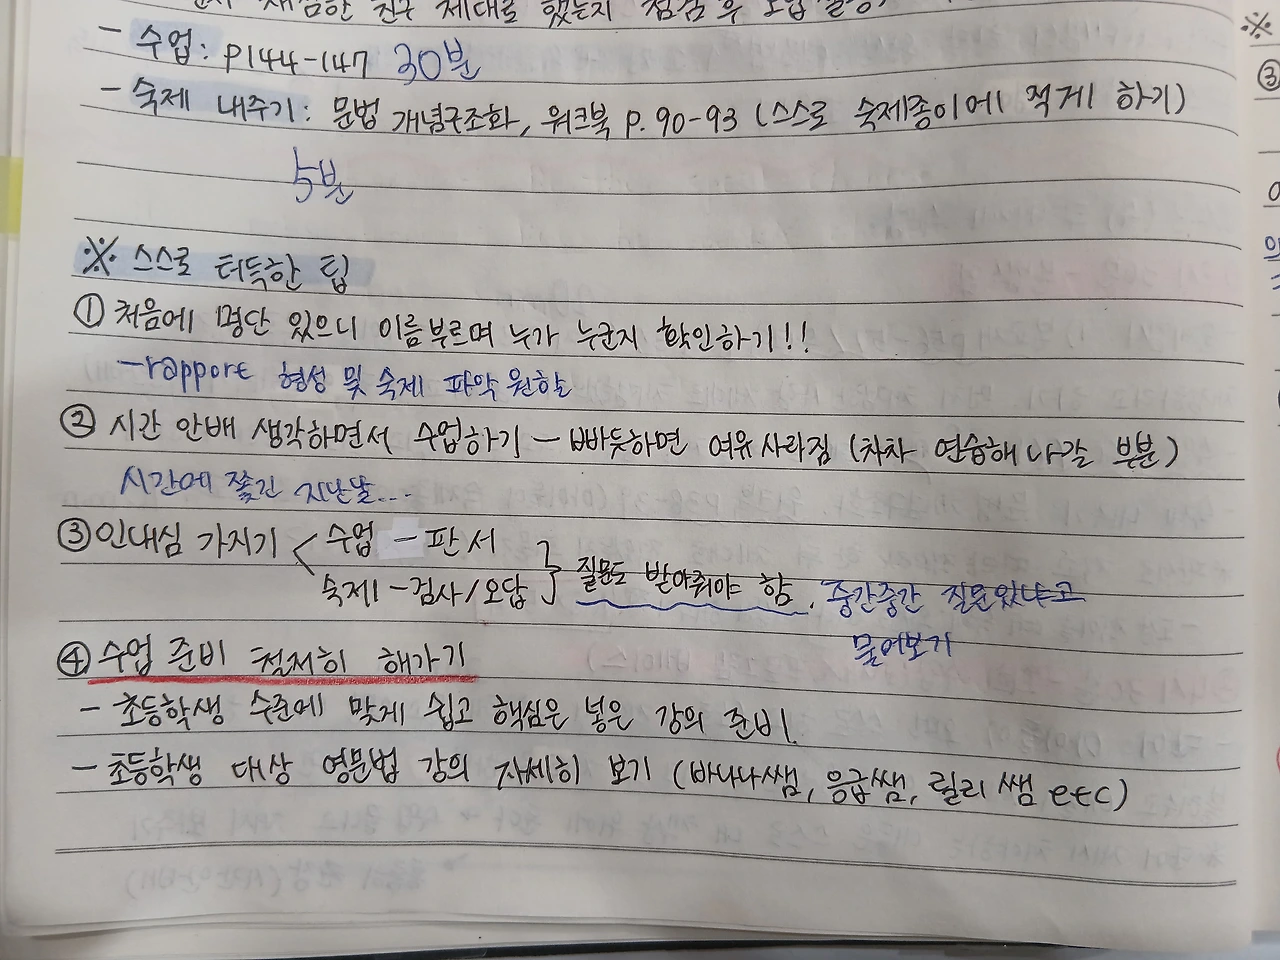 재점검한 친구 제대로 했는지 점검 후
- 수업: P144-147 30분
- 숙제 내주기: 문법 개념구조화, 워크북 P. 90-93 (스스로 숙제종이에 적게 하기)
5분
※ 스스로 터득한 팁
① 처음에 명단 있으니 이름부르며 누가 누군지 확인하기!!
-rapport 형성 및 숙제 파악 원할
② 시간 안배 생각하면서 수업하기 - 빠듯하면 여유 사라짐 (차차 연습해 나갈 부분)
시간에 쫓긴 지난날...
③ 인내심 가지기 < 수업 - 판서
숙제 - 검사/오답 } 질문도 받아줘야 함. 중간중간 질문있냐고
물어보기
④ 수업 준비 철저히 해가기
- 초등학생 수준에 맞게 쉽고 핵심은 넣은 강의 준비.
- 초등학생 대상 영문법 강의 자세히 보기 (바나나쌤, 응급쌤, 릴리쌤 etc)
※
③